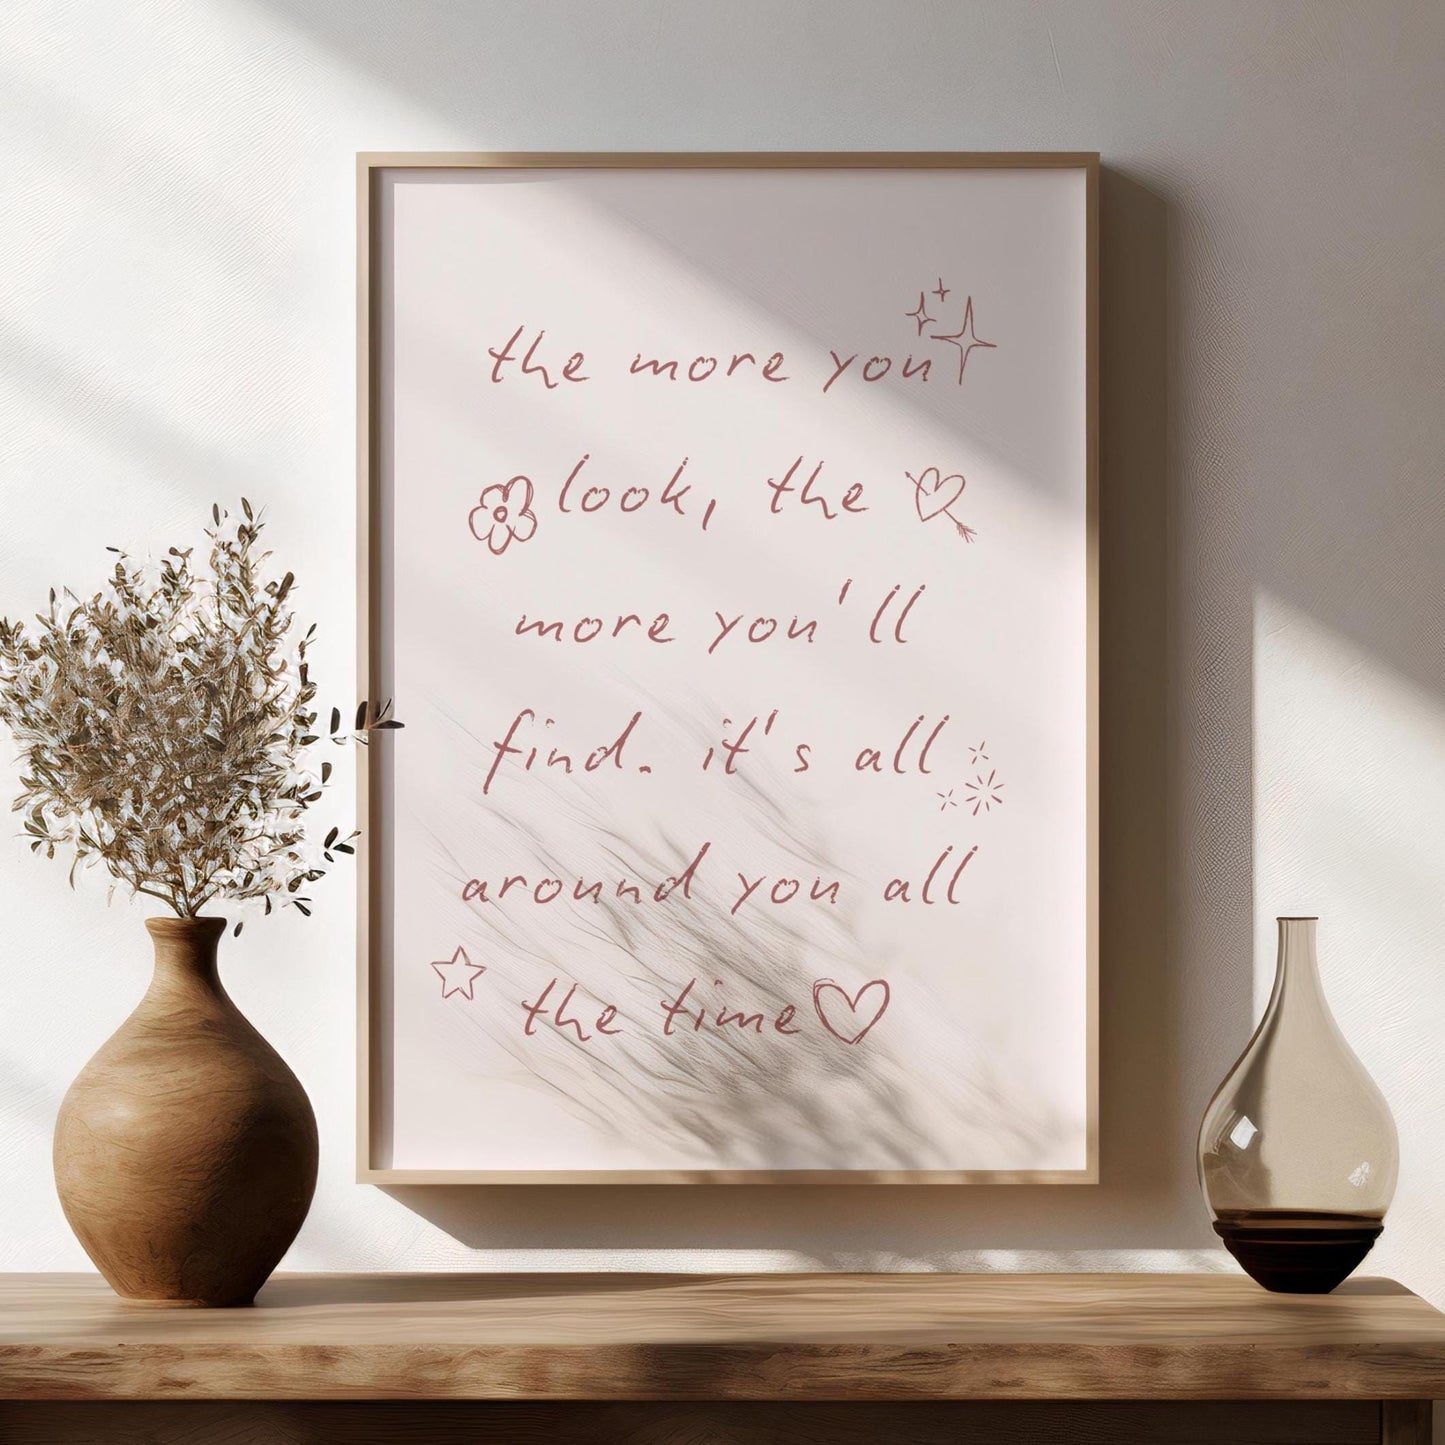 the more you
look, the
more you'll
find. it's all
around you all
the time